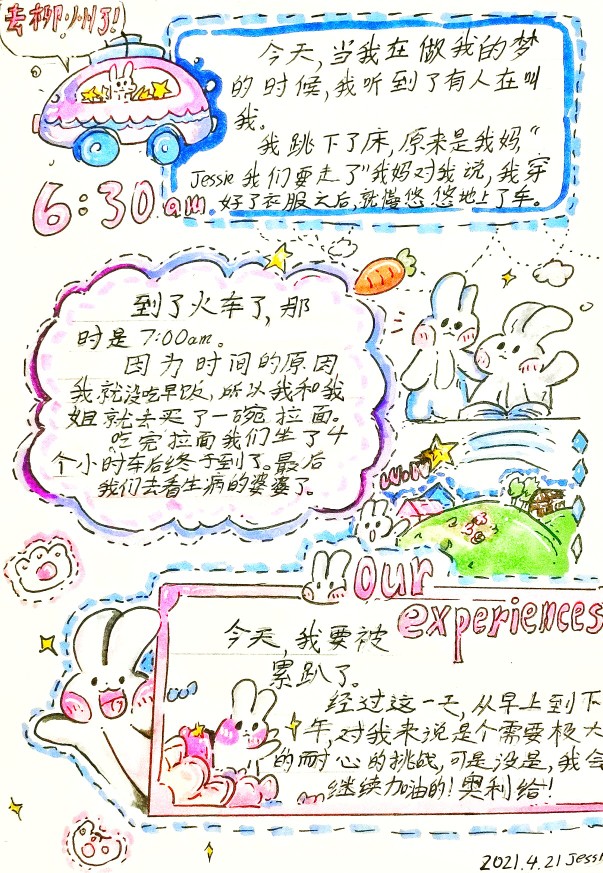 去柳州了!
今天,当我在做我的梦
的时候,我听到了有人在叫
我。
我跳下了床,原来是我妈"
Jessie 我们要走了"我妈对我说,我穿
好了衣服之后,就慢悠悠地上了车。
6:30am
到了火车了,那
时是7:00am。
因为时间的原因
我就没吃早饭,所以我和我
姐就去买了一碗拉面。
吃完拉面我们坐了4
个小时车后终于到了。最后
我们去看生病的婆婆了。
wow
our
experiences
今天,我要被
累趴了。
经过这一天,从早上到下
午,对我来说是个需要极大
的耐心的挑战,可是没是,我会
继续加油的!奥利给!
2021.4.21 Jessi